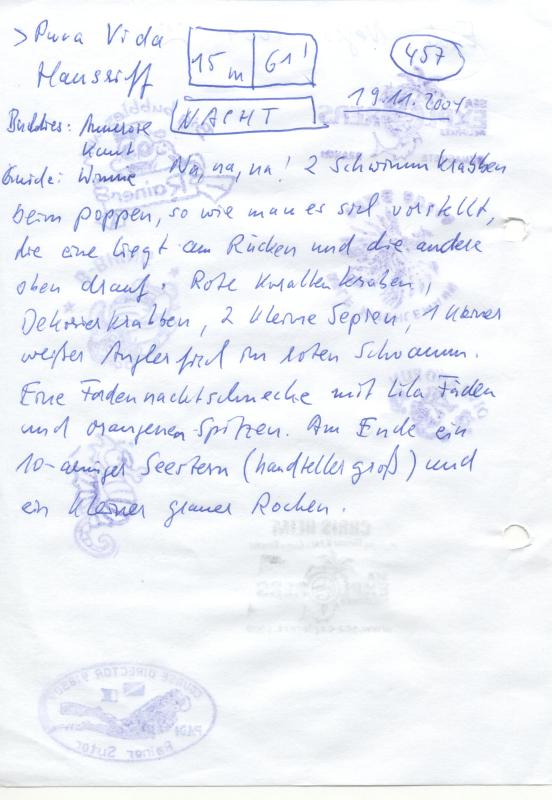 > Pura Vida
Hausriff
15 m | 61'
457
19.11.2004
NACHT
Buddies: Annerose
Kant
Guide: Winnie
Na, na, na! 2 Schwimmkrabben
beim poppen, so wie man es sich vorstellt,
die eine liegt am Rücken und die andere
oben drauf. Rote Korallenkrabben,
Dekorierkrabben, 2 kleine Sepien, 1 kleiner
weißer Anglerfisch im roten Schwamm.
Eine Fadennachtschnecke mit lila Fäden
und orangenen Spitzen. Am Ende ein
10-armiger Seestern (handtellergroß) und
ein kleiner grauer Rochen.
CHRIS HEIM
COURSE DIRECTOR
PADI
Rainer Sutor